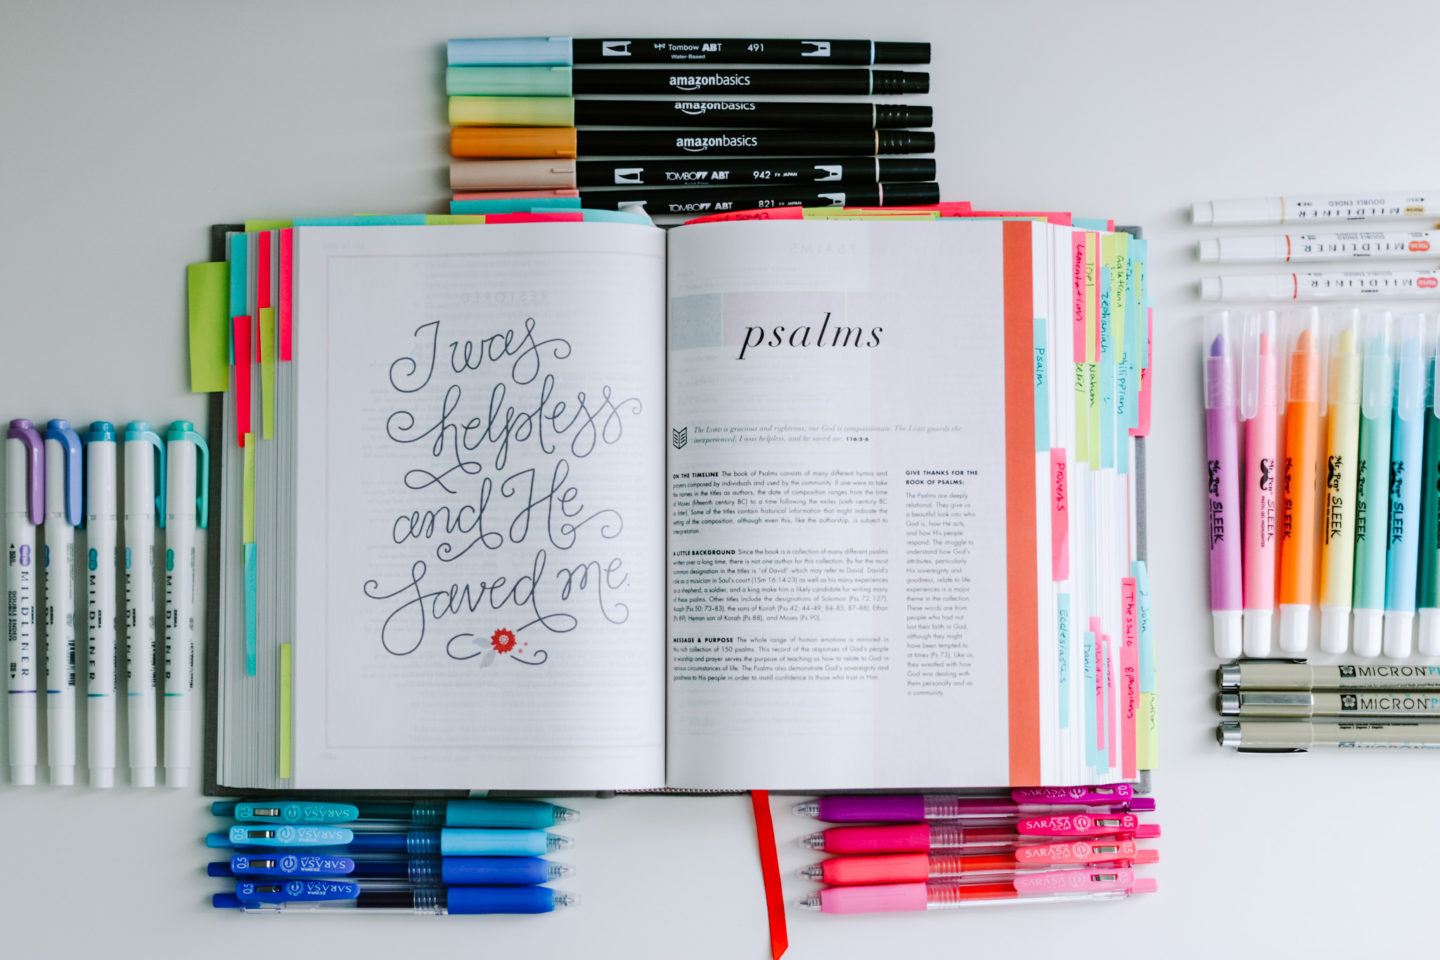 Tombow ABT 491
Water-Based
amazonbasics
amazonbasics
amazonbasics
TOMBOW ABT 942 JAPAN
TOMBOW ABT 821 JAPAN
I was
helpless
and He
saved me.
RESTORED
psalms
The LORD is gracious and righteous; our God is compassionate. The LORD guards the
inexperienced; I was helpless, and he saved me. 116:5-6
ON THE TIMELINE The book of Psalms consists of many different hymns and
prayers composed by individuals and used by the community. If one were to take
the names in the titles as authors, the date of composition ranges from the time
of Moses (fifteenth century BC) to a time following the exiles (sixth century BC
or later). Some of the titles contain historical information that might indicate the
setting of the composition, although even this, like the authorship, is subject to
interpretation.
A LITTLE BACKGROUND Since the book is a collection of many different psalms
written over a long time, there is not one author for this collection. By far the most
common designation in the titles is "of David" which may refer to David. David's
role as a musician in Saul's court (1Sm 16:14-23) as well as his many experiences
as a shepherd, a soldier, and a king make him a likely candidate for writing many
of these psalms. Other titles include the designations of Solomon (Ps 72; 127),
Asaph (Ps 50; 73-83), the sons of Korah (Ps 42; 44-49; 84-85; 87-88), Ethan
(Ps 89), Heman son of Korah (Ps 88), and Moses (Ps 90).
MESSAGE & PURPOSE The whole range of human emotions is mirrored in
this rich collection of 150 psalms. This record of the responses of God's people
in worship and prayer serves the purpose of teaching us how to relate to God in
various circumstances of life. The Psalms also demonstrate God's sovereignty and
goodness to His people in order to instill confidence in those who trust in Him.
GIVE THANKS FOR THE
BOOK OF PSALMS:
The Psalms are deeply
relational. They give us
a beautiful look into who
God is, how He acts,
and how His people
respond. The struggle to
understand how God's
attributes, particularly
His sovereignty and
goodness, relate to life
experiences is a major
theme in the collection.
These words are from
people who had not
lost their faith in God,
although they might
have been tempted to
at times (Ps 73). Like us,
they wrestled with how
God was dealing with
them personally and as
a community.
Psalm
Proverbs
Ecclesiastes
Lamentations
Joel
Zephaniah
Nahum
Galatians
Philippians
Daniel
Obadiah
1 Thessalo
Ephesians
2 John
MILDLINER
MILDLINER
MILDLINER
MILDLINER
MILDLINER
MILDLINER
DOUBLE ENDED
MILDLINER
DOUBLE ENDED
MILDLINER
DOUBLE ENDED
Mr. Pen SLEEK
Mr. Pen SLEEK
Mr. Pen SLEEK
Mr. Pen SLEEK
Mr. Pen SLEEK
Mr. Pen SLEEK
MICRON
MICRON
MICRON
0.5 SARASA
0.5 SARASA
0.5 SARASA
0.5 SARASA
SARASA 0.5
SARASA 0.5
SARASA 0.5